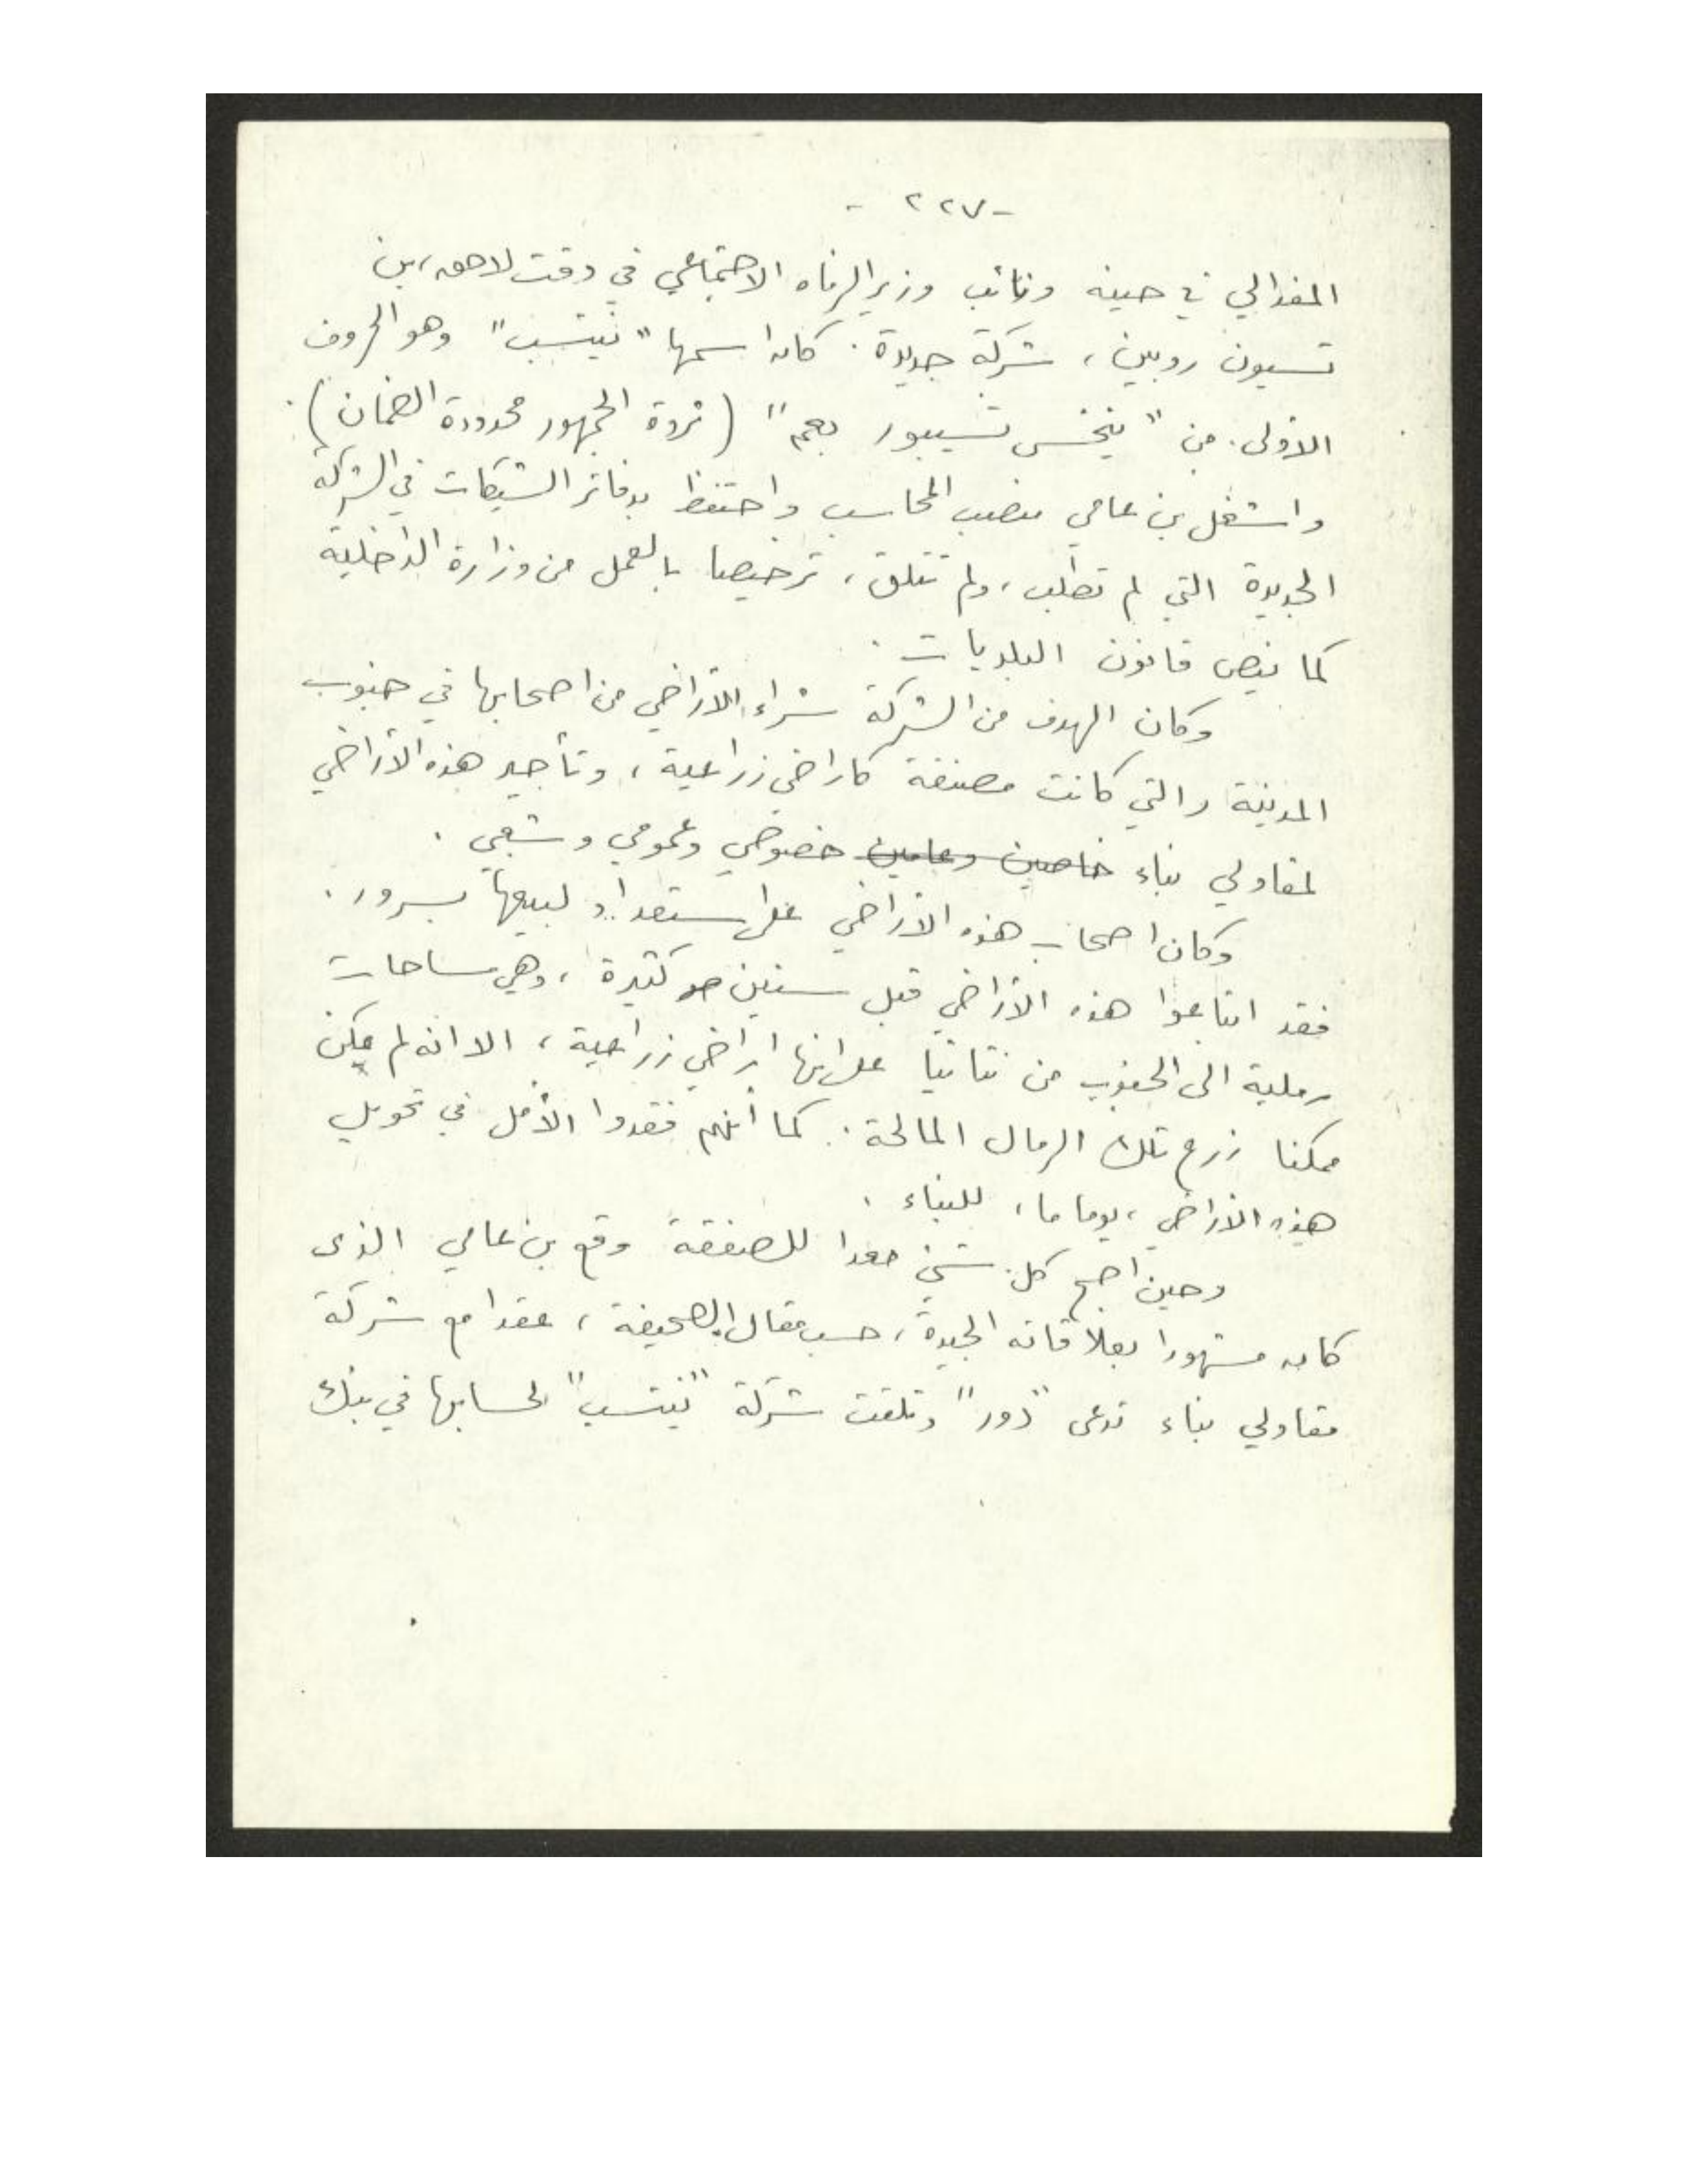 - ٢٢٧ -
المفدالي في حينه ونائب وزير الرفاه الاجتماعي في وقت لاحق، بن
تسيون روبين، شركة جديدة. كان اسمها "نيتسب" وهو الحروف
الاولى. من "ينخسي تسيبور بعم" (ثروة الجمهور محدودة الضمان).
واشغل بن عامي منصب المحاسب واحتفظ بدفاتر الشيكات في الشركة
الجديدة التي لم تطلب، ولم تتلق، ترخيصا بالعمل من وزارة الداخلية
كما ينص قانون البلديات.
وكان الهدف من الشركة شراء الأراضي من اصحابها في جنوب
المدينة والتي كانت مصنفة كاراضي زراعية، وتأجير هذه الأراضي
لمقاولي بناء خاصين وعامين خصوصي وعمومي وشعبي.
وكان اصحاب هذه الأراضي على استعداد لبيعها بسرور.
فقد ابتاعوا هذه الأراضي قبل سنين كثيرة، وهي مساحات
رملية الى الجنوب من نتانيا على انها اراضي زراعية، الا انه لم يكن
ممكنا زرع تلك الرمال المالحة. كما أنهم فقدوا الأمل في تحويل
هذه الأراضي، يوما ما، للبناء.
وحين اصبح كل شيئ معدا للصفقة وقع بن عامي الذى
كان مشهورا بعلاقاته الجيدة، حسب مقال الصحيفة، عقدا مع شركة
مقاولي بناء تدعى "دور" وتلقت شركة "نيتسب" لحسابها في بنك